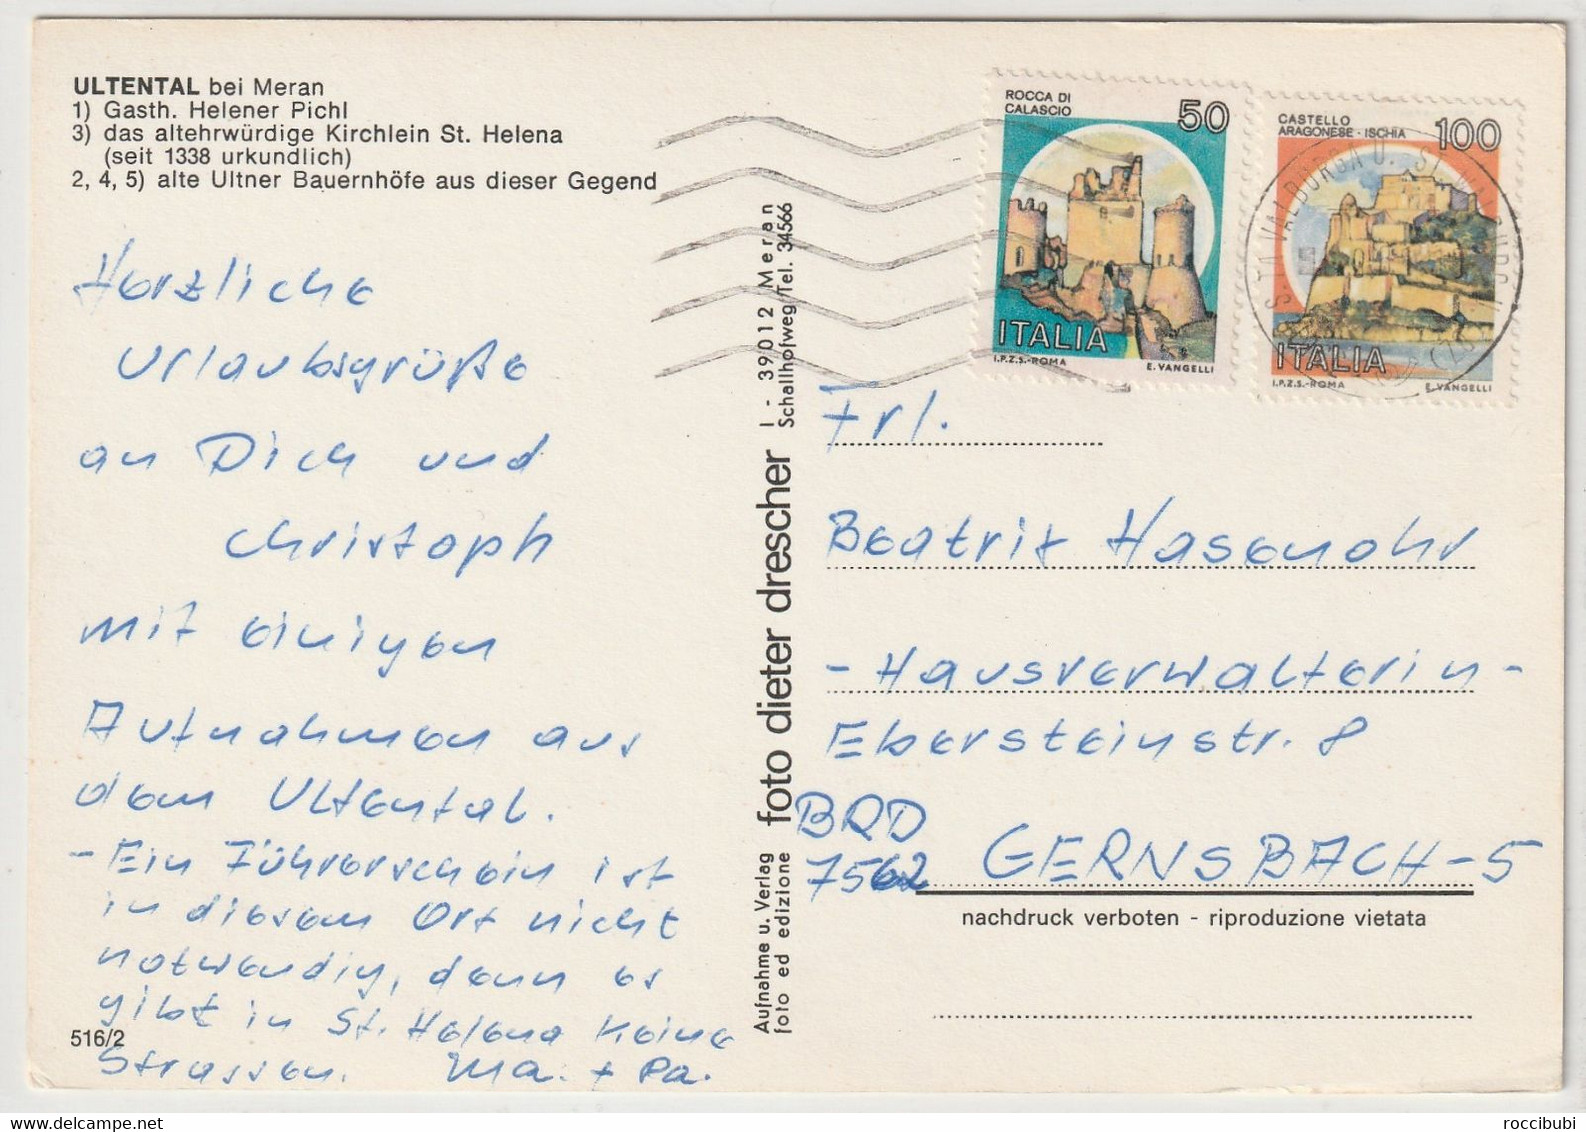 ULTENTAL bei Meran
1) Gasth. Helener Pichl
3) das altehrwürdige Kirchlein St. Helena
(seit 1338 urkundlich)
2, 4, 5) alte Ultner Bauernhöfe aus dieser Gegend
Herzliche
Urlaubsgrüße
an Dich und
Christoph
mit einigen
Aufnahmen aus
dem Ultental.
- Ein Führerschein ist
in diesem Ort nicht
notwendig, denn es
gibt in St. Helena keine
Strassen. Ma. + Pa.
516/2
Aufnahme u. Verlag
foto ed edizione
foto dieter drescher
I - 39012 Meran
Schallhofweg Tel. 34566
ROCCA DI
CALASCIO
50
ITALIA
I.P.Z.S.-ROMA E. VANGELLI
CASTELLO
ARAGONESE - ISCHIA
100
ITALIA
I.P.Z.S.-ROMA E. VANGELLI
S. TA VALBURGA U. ST. WALBURG
Frl.
Beatrix Hasenohr
- Hausverwalterin -
Ebersteinstr. 8
BRD
7562 GERNSBACH-5
nachdruck verboten - riproduzione vietata
roccibubi